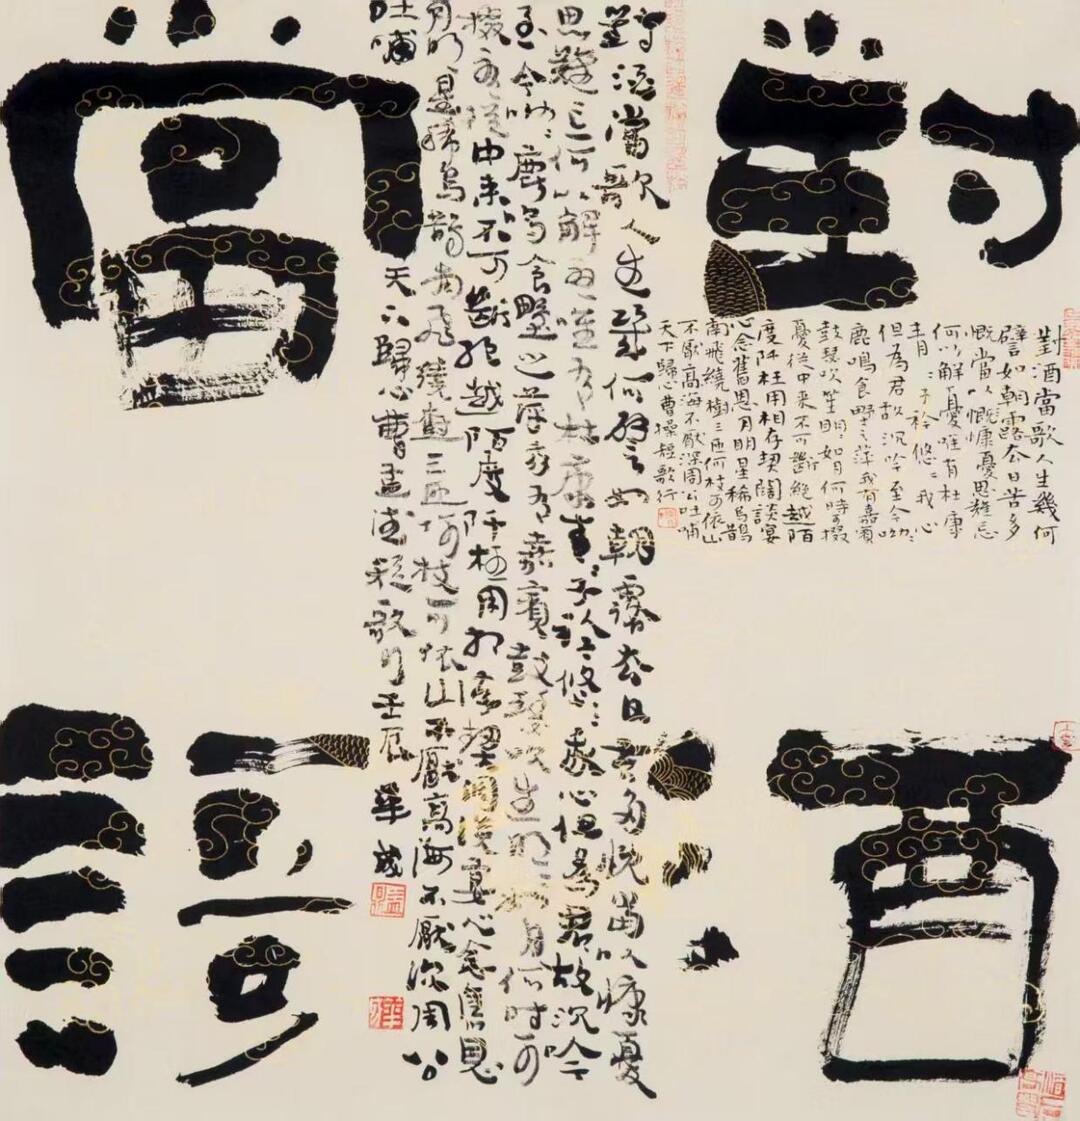 對酒
當謌
對酒當歌人生幾何譬如朝露去日苦多慨當以慷憂
思難忘何以解憂唯有杜康青:子衿悠:我心但為君故沉吟
至今呦:鹿鳴食野之萍我有嘉賓鼓瑟吹笙明:如月何時可
掇憂從中來不可斷絕越陌度阡枉用相存契闊談宴心念舊恩
月明星稀烏鵲南飛繞樹三匝何枝可依山不厭高海不厭深周公
吐哺天下歸心曹孟德短歌行壬辰華
對酒當歌人生幾何
譬如朝露去日苦多
慨當以慨慷憂思難忘
何以解憂唯有杜康
青:子衿悠:我心
但為君故沉吟至今呦:
鹿鳴食野之萍我有嘉賓
鼓瑟吹笙明:如月何時可掇
憂從中來不可斷絕越陌
度阡枉用相存契闊談宴
心念舊恩月明星稀烏鵲
南飛繞樹三匝何枝可依山
不厭高海不厭深周公吐哺
天下歸心曹操短歌行